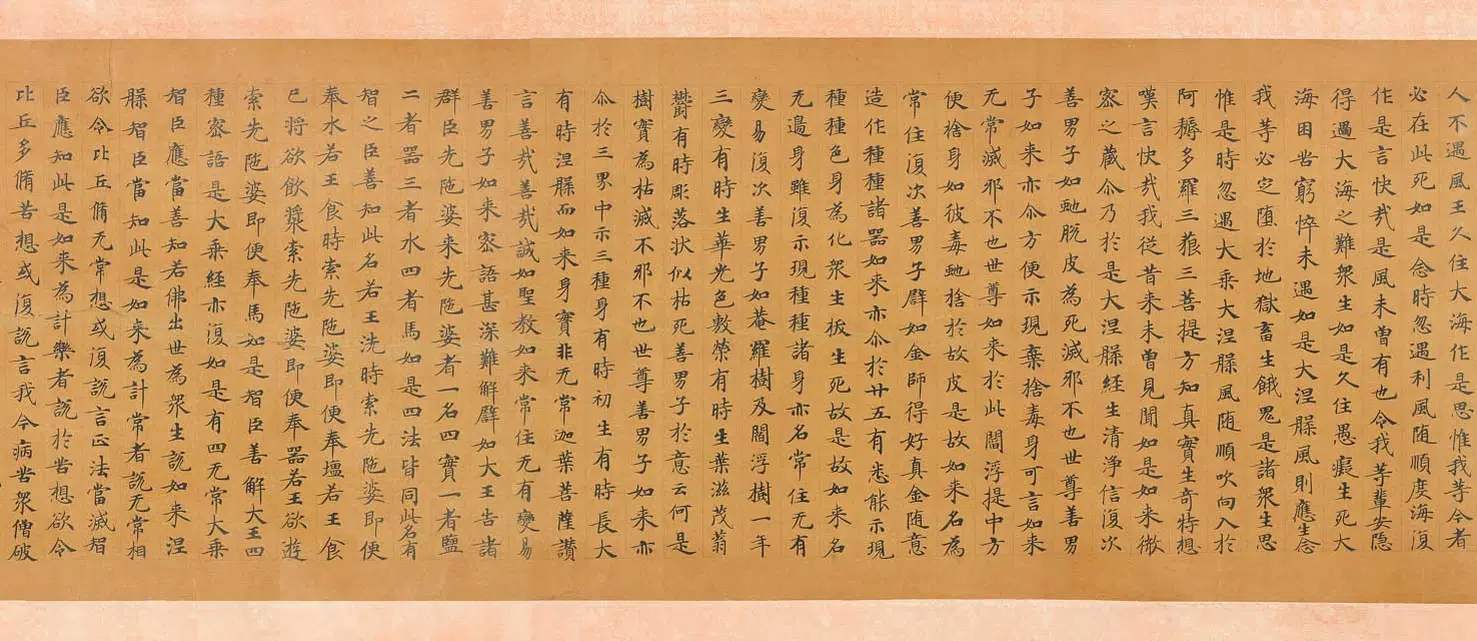 人不遇風王久住大海作是思惟我等今者
必在此死如是念時忽遇利風随順度海復
作是言快㢤是風未曽有也令我等輩安隐
得過大海之難衆生如是久住愚癡生死大
海困苦窮悴未遇如是大涅縏風則應生念
我等必定堕於地獄畜生餓鬼是諸衆生思
惟是時忽遇大乗大涅縏風随順吹向入於
阿耨多羅三藐三菩提方知真實生奇特想
嘆言快㢤我従昔来未曽見聞如是如来微
宻之蔵尒乃於是大涅縏経生清浄信復次
善男子如虵脱皮為死滅邪不也世尊善男
子如来亦尒方便示現棄捨毒身可言如来
无常滅邪不也世尊如来於此閻浮提中方
便捨身如彼毒虵捨於故皮是故如来名為
常住復次善男子辟如金師得好真金随意
造作種種諸器如来亦尒於廿五有悉能示現
種種色身為化衆生抜生死故是故如来名
无邉身雖復示現種種諸身亦名常住无有
變易復次善男子如菴羅樹及閻浮樹一年
三變有時生華光色敷榮有時生葉滋茂蓊
欝有時彫落状似枯死善男子於意云何是
樹實為枯滅不邪不也世尊善男子如来亦
尒於三界中示三種身有時初生有時長大
有時涅縏而如来身實非无常迦葉菩薩讃
言善㢤善㢤誠如聖教如来常住无有變易
善男子如来宻語甚深難解辟如大王告諸
群臣先陁婆来先陁婆者一名四實一者鹽
二者器三者水四者馬如是四法皆同此名有
智之臣善知此名若王洗時索先陁婆即便
奉水若王食時索先陁婆即便奉壇若王食
已将欲飲漿索先陁婆即便奉器若王欲遊
索先陁婆即便奉馬如是智臣善解大王四
種宻語是大乗経亦復如是有四无常大乗
智臣應當善知若佛出世為衆生説如来涅
縏智臣當知此是如来為計常者説无常相
欲令比丘脩无常想或復説言正法當滅智
臣應知此是如来為計樂者説於苦想欲令
比丘多脩苦想或復説言我今病苦衆僧破